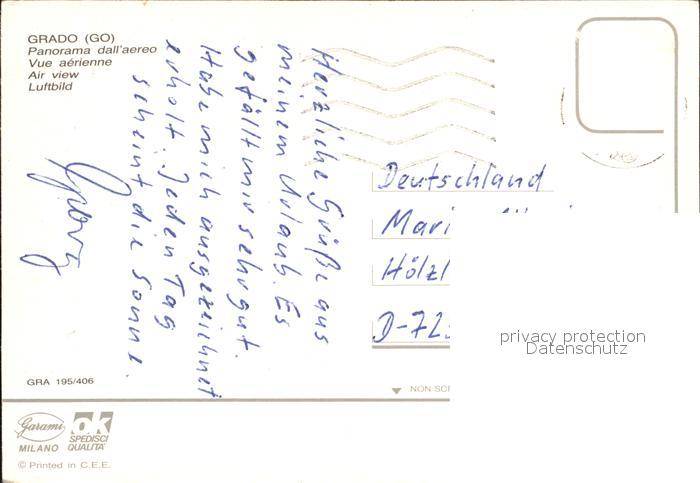 GRADO (GO)
Panorama dall'aereo
Vue aérienne
Air view
Luftbild
Herzliche Grüße aus
meinem Urlaub. Es
gefällt mir sehr gut.
Habe mich ausgezeichnet
erholt. Jeden Tag
scheint die Sonne.
Deutschland
Mari
Hölzl
D-72
privacy protection
Datenschutz
GRA 195/406
NON SCR
Garami
MILANO
ok
SPEDISCI
QUALITA'
© Printed in C.E.E.